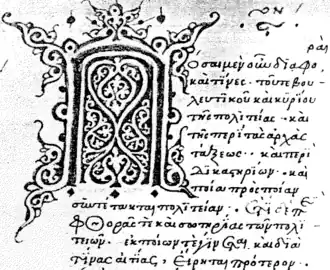 ραὶ
Πόσαι μὲν οὖν διαφο
καὶ τίνες· τοῦ τε βου
λευτικοῦ καὶ κυρίου
τῆς πολιτείας· καὶ
τῆς περὶ τὰς ἀρχὰς
τάξεως· καὶ περὶ
δικαστηρίων· καὶ
ποία πρὸς ποίαν
συντέτακται πολιτείαν. ἔτι δὲ περὶ
φθορᾶς τε καὶ σωτηρίας τῶν πολι
τειῶν. ἐκ ποίων τε γίνεται καὶ διὰ
τίνας αἰτίας, εἴρηται πρότερον.